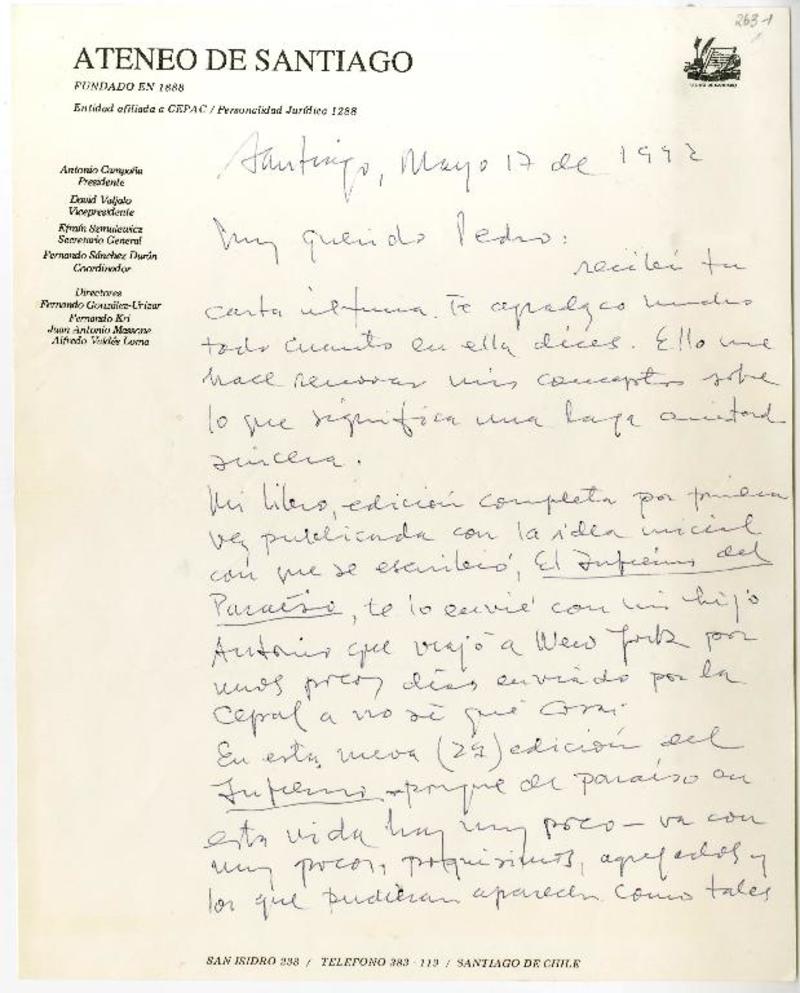 263-1
ATENEO DE SANTIAGO
FUNDADO EN 1888
Entidad afiliada a CEPAC / Personalidad Jurídica 1288
Santiago, Mayo 17 de 1992
Antonio Campaña
Presidente
David Valjalo
Vicepresidente
Efraín Szmulewicz
Secretario General
Fernando Sánchez Durán
Coordinador
Directores
Fernando González-Urízar
Fernando Kri
Juan Antonio Massone
Alfredo Valdés Loma
Muy querido Pedro:
recibí tu
carta última. Te agradezco mucho
todo cuanto en ella dices. Ello me
hace renovar mis conceptos sobre
lo que significa una larga amistad
sincera.
Mi libro, edición completa por primera
vez publicada con la idea inicial
con que se escribió, El Infierno del
Paraíso, te lo envié con mi hijo
Antonio que viajó a New York por
unos pocos días enviado por la
Cepal a no sé qué cosa.
En esta nueva (2ª) edición del
Infierno -porque de paraíso en
esta vida hay muy poco- va con
muy pocos, poquísimos, agregados y
los que pudieran aparecer como tales
SAN ISIDRO 238 / TELEFONO 383 - 119 / SANTIAGO DE CHILE